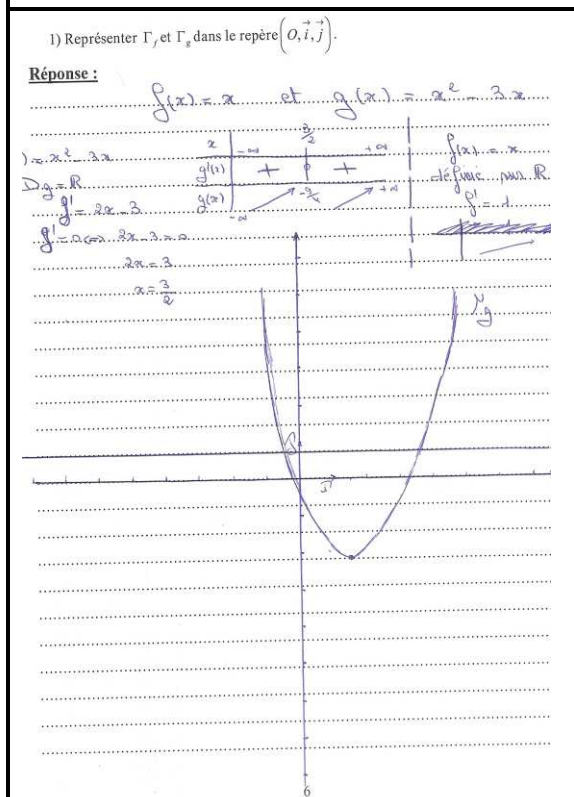 1) Représenter Γ_f et Γ_g dans le repère (O, i, j).
Réponse :
f(x) = x et g(x) = x² - 3x
) = x² - 3x
Dg = ℝ
g' = 2x - 3
g' = 0 ⇔ 2x - 3 = 0
2x = 3
x = 3/2
x -∞ 3/2 +∞
g'(x) + 0 +
g(x) -∞ -9/4 +∞
f(x) = x
définie sur ℝ
f' = 1
Γg
6